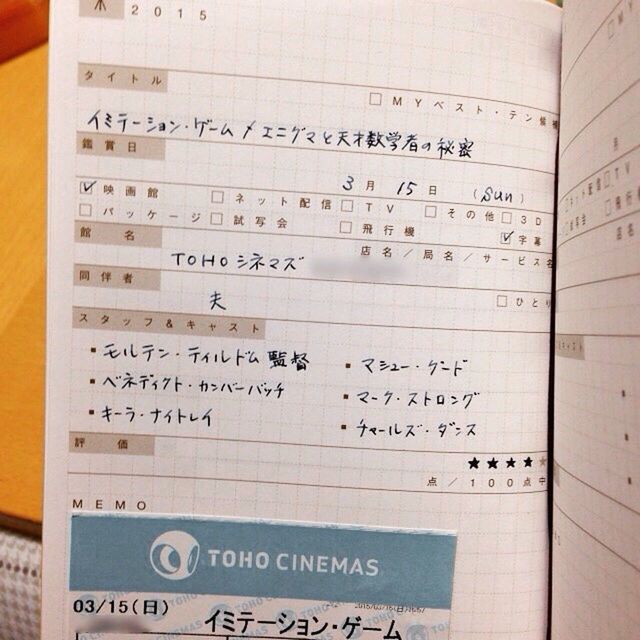 木 2015
タイトル
□ MYベスト・テン候補
イミテーション・ゲーム/エニグマと天才数学者の秘密
鑑賞日
3月 15日 (Sun)
☑ 映画館 □ ネット配信 □ TV □ その他 □ 3D
□ パッケージ □ 試写会 □ 飛行機 ☑ 字幕
館名 店名/局名/サービス名
TOHOシネマズ
同伴者
夫 □ ひとり
スタッフ&キャスト
▪ モルテン・ティルドム監督 ▪ マシュー・グード
▪ ベネディクト・カンバーバッチ ▪ マーク・ストロング
▪ キーラ・ナイトレイ ▪ チャールズ・ダンス
評価
★★★★
点/100点中
MEMO
TOHO CINEMAS
03/15(日) イミテーション・ゲーム